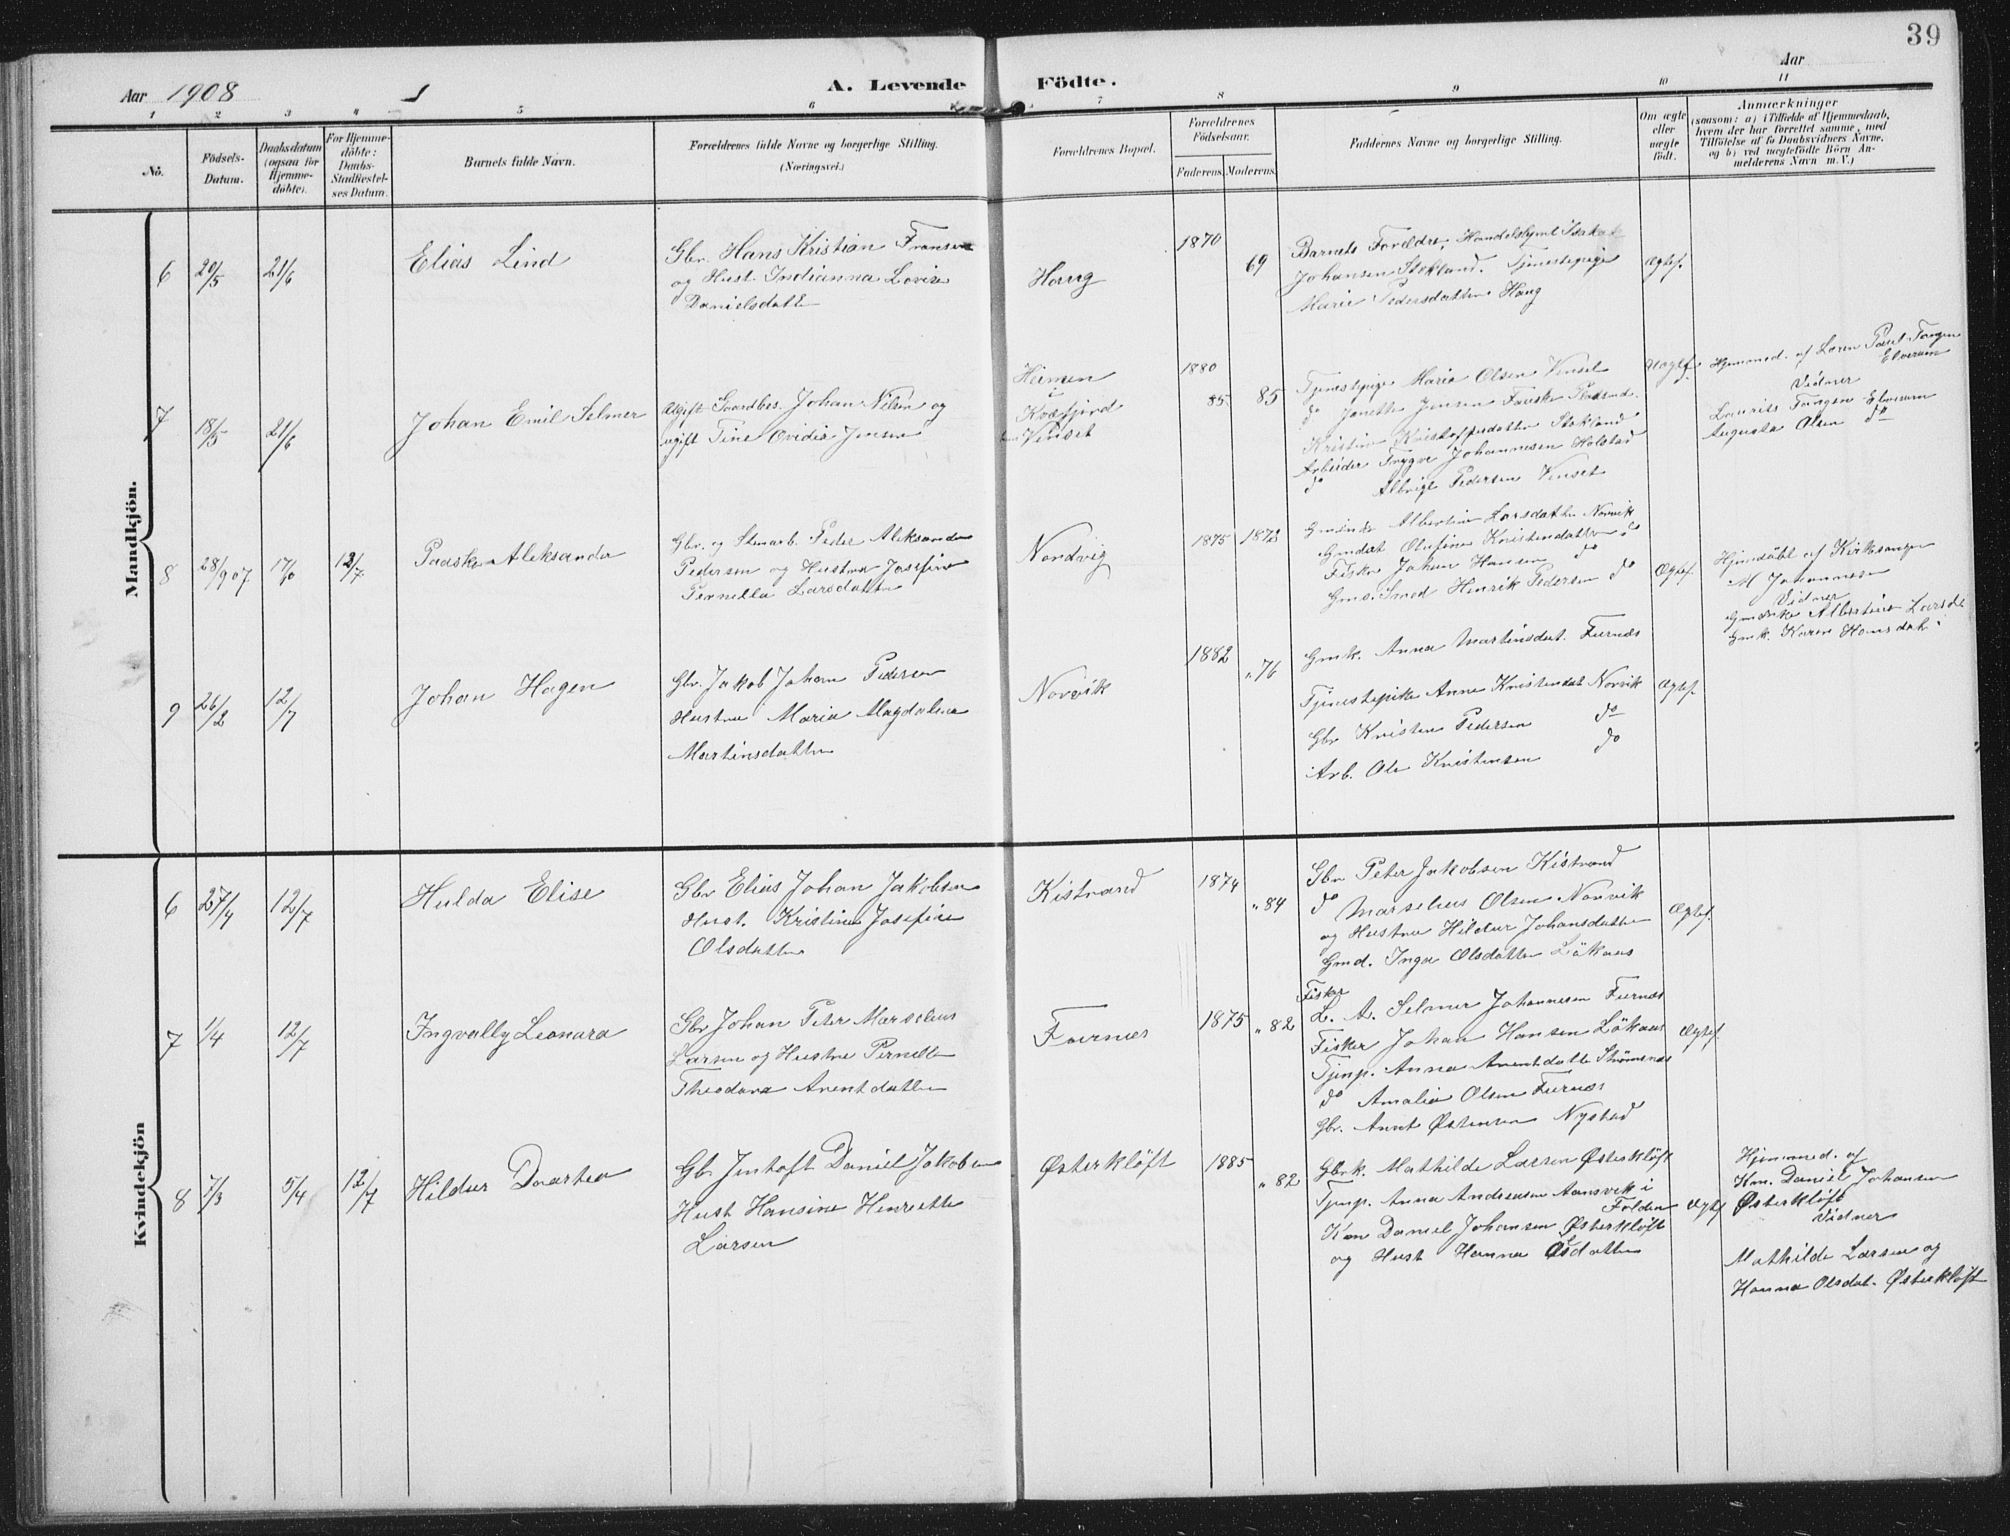 39
Aar 1908
A. Levende Födte.
Aar
1 2 3 4 5 6 7 8 9 10 11
No.
Födsels-Datum.
Daabsdatum (ogsaa for Hjemme-döbte).
For Hjemme-döbte: Daabs-Stadfæstelses Datum.
Barnets fulde Navn.
Forældrenes fulde Navne og borgerlige Stilling.
(Næringsvei.)
Forældrenes Bopæl.
Forældrenes Födselsaar.
Faderens. Moderens.
Faddernes Navne og borgerlige Stilling.
Om ægte eller uægte födt.
Anmærkninger
(saasom: a) i Tilfælde af Hjemmedaab,
hvem der har forrettet samme, med
Tilföielse af to Daabsvidners Navne,
og b) ved uægtefödte Börn An-
melderens Navn m. V.)
Mandkjön.
6 20/5 21/6 Elias Lind
Gbr. Hans Kristian Fransen
og Hust. Indianna Lovise
Danielsdatt
Haug
1870 69
Barnets Forældre, Handelsbyml Isak
Johansen Stokland. Tjenestepige
Marie Pedersdatter Haug
Ægtef.
7 18/5 21/6 Johan Emil Selmer
Ugift Gaardbr. Johan Nilsen og
ugift Tine Ovidia Jensen
i
Kvæfjord
Vinset
1880 85 85
Tjenestepige Maria Olsen Vinset
do Janette Jensen Fauske
Kristine Kristoffersdatter Stokland
Arbeider Trygve Johannesen Holstad
do Albrigt Pedersen Vinset
Uægtef.
Hjemmed. af Loren Tangen
Elverum
Vidner
Laurits Tangen Elverum
Augusta Olsen do
8 28/9 07 17/10 12/7 Paaske Aleksander
Gbr. og Stenarb. Peder Aleksander
Pedersen og Hustru Josefine
Pernella Larsdatter
Nordvig
1875 1872
Gmenke Albertine Larsdatter Norvik
Gmdat Olufine Kristensdatter do
Fisker Johan Hansen do
Gms. Smed Henrik Pedersen do
Ægtef.
Hjemdöbt af Kirkesanger
M Johannesen
Vidner
Gmenke Albertine Larsd
Gmk. Karen Hansdatt.
9 26/2 12/7 Johan Hagen
Gbr. Jakob Johan Pedersen
Hustru Maria Magdalena
Martinsdatter
Norvik
1882 " 76
Gmk. Anna Martinsdat. Furnæs
Tjenestepike Anne Kristensdat Norvik
Gbr Kristen Pedersen do
Arb. Ole Kristensen do
Ægtef.
Kvindekjön
6 27/4 12/7 Hulda Elise
Gbr Elias Johan Jakobsen
Hust. Kristine Josefine
Olsdatter
Kistrand
1874 " 84
Gbr Peter Jakobsen Kistrand
do Marselius Olsen Norvik
og Hustru Hildur Johansdatter
Gmd. Inga Olsdatter Løkaas
Ægtef.
7 1/4 12/7 Ingvally Leonara
Gbr Johan Peter Marselius
Larsen og Hustru Pernelle
Theodora Arentdatter
Fuernæs
1875 " 82
Fisker
L. A. Selmer Johannesen Furnæs
Fisker Johan Hansen Løkaas
Tjenp. Anna Arentdatte Strømsnæs
do Amalia Olsen Furnæs
Gbr. Arent Østensen Nystad
Ægtef.
8 7/3 5/4 12/7 Hildur Daartea
Gb. Jentoft Daniel Jakobsen
Hust Hansine Henriette
Larsen
Østerkløft
1885 " 82
Gbrk. Mathilde Larsen Østerkløft
Tjenp. Anna Andreasen Aansvik i
Folden
Kan Daniel Johansen Østerkløft
og Hust Hanna Olsdatter
Ægtef
Hjemmed. af
Kan. Daniel Johansen
Østerkløft
Vidner
Mathilde Larsen og
Hanna Olsdat. Østerkløft